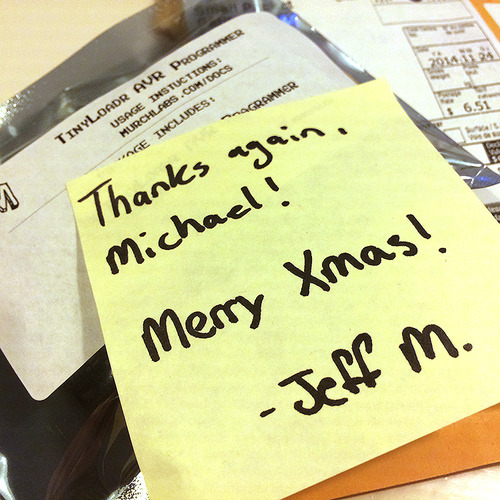 TinyLoadr AVR Programmer
Usage Instuctions:
murchlabs.com/docs
Programmer
2014.11.24
$ 6.51
Thanks again,
Michael!
Merry Xmas!
-Jeff M.